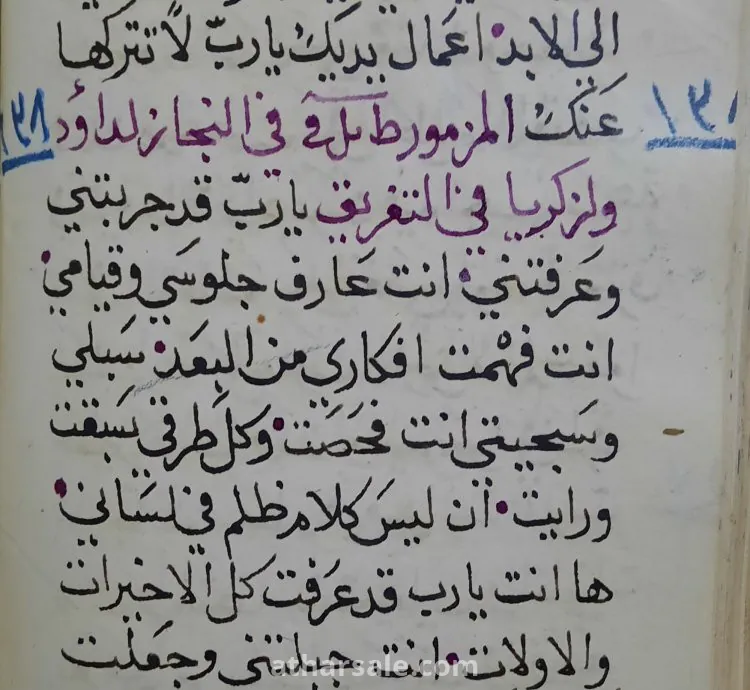 الي الابد اعمال يديك يا ربّ لا تتركها
عَنكْ المزمور في النجاز لداوُد ١٣٨
ولزكريا في التفريق يا ربّ قد جربتني
وعَرفتني انت عَارف جلوسَي وقيامي
انت فهْمت افكاري من البعَد سَبلي
وسَجيتي انت فحَصَت وكل طرقي سَبقت
ورايت ان ليسَ كلام ظلم في لسَاني
ها انت يا رب قد عرَفت كل الاخيرات
والاولات انت جبلتني وجعَلت
atharsale.com